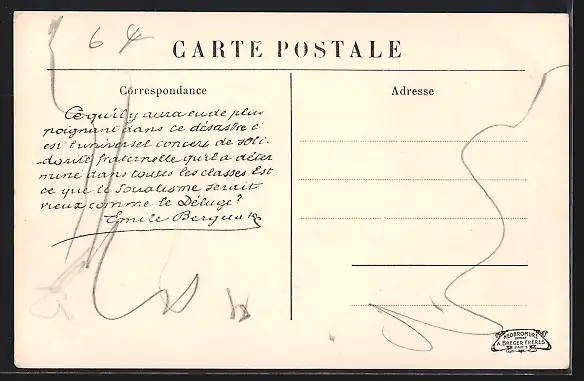 64
CARTE POSTALE
Correspondance
Adresse
Ce qu'il y aura eu de plus
poignant dans ce désastre c'
est l'universel concers de soli-
-darité fraternelle qu'il a déter
miné dans toutes les classes. Est
ce que le Socialisme serait
vieux comme le Déluge?
Emile
NEOBROMURE
A. BREGER FRÈRES
PARIS